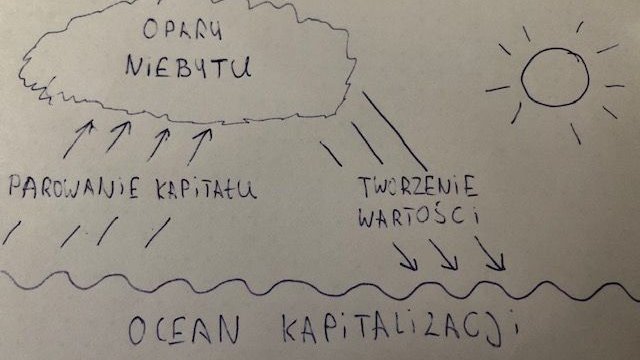 OPARY
NIEBYTU
PAROWANIE KAPITAŁU
TWORZENIE
WARTOŚCI
OCEAN KAPITALIZACJI